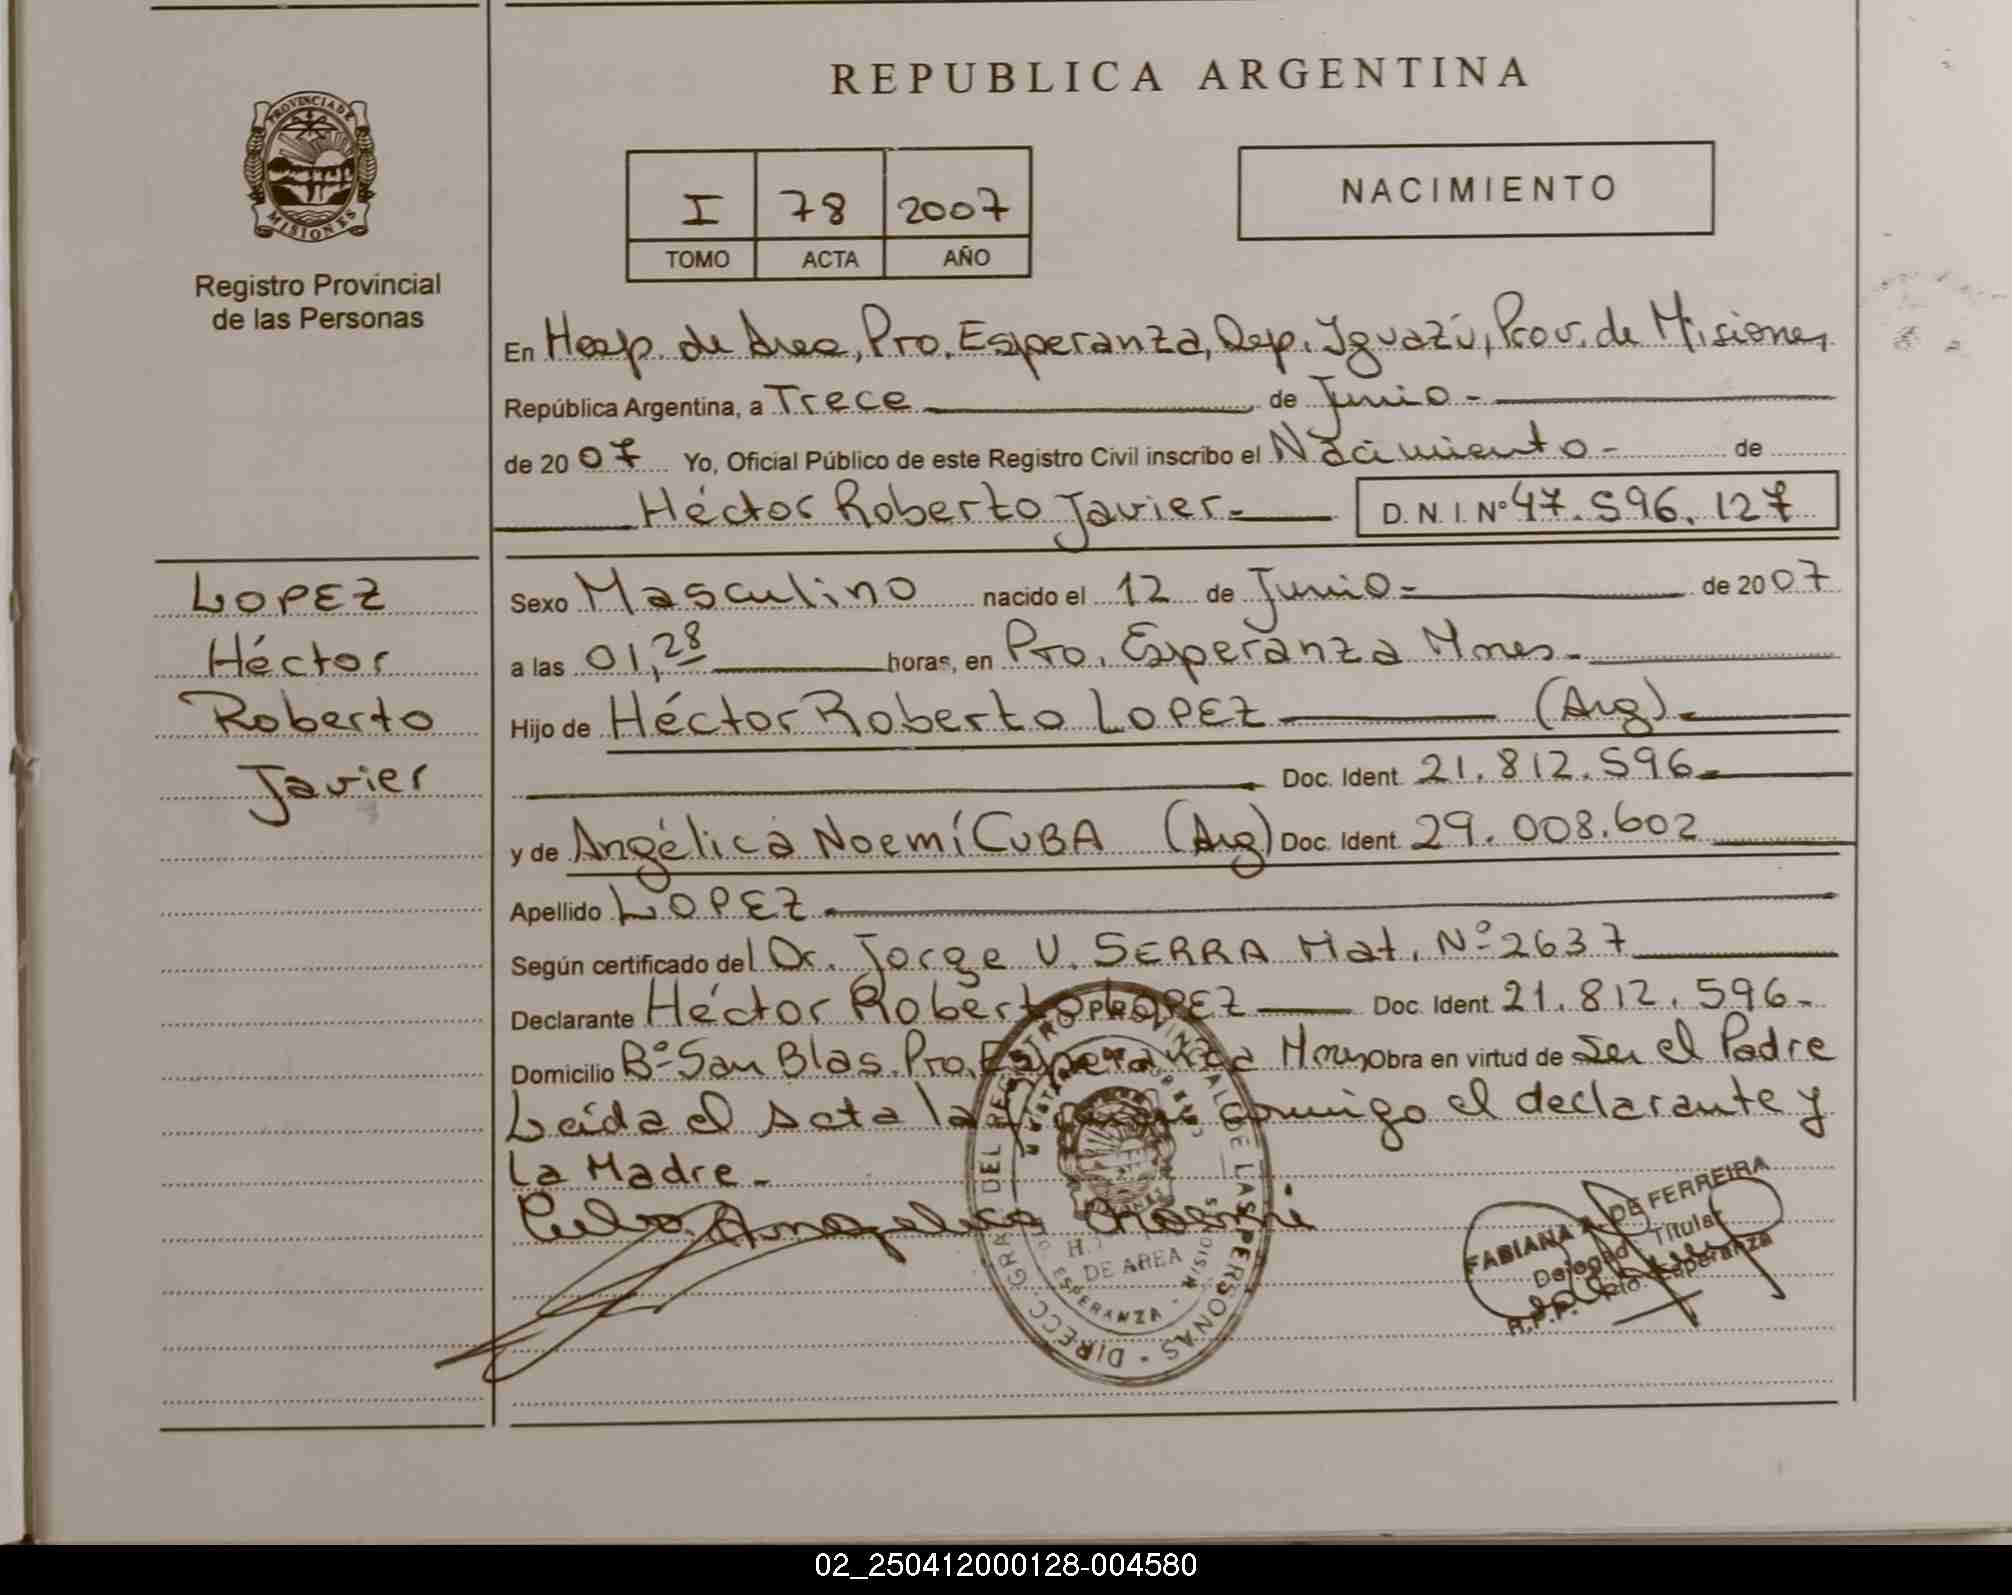 REPUBLICA ARGENTINA
PROVINCIA DE
MISIONES
Registro Provincial
de las Personas
I 78 2007
TOMO ACTA AÑO
NACIMIENTO
En Hosp. de Area, Pto. Esperanza, Dep. Iguazú, Prov. de Misiones
República Argentina, a Trece de Junio -
de 2007 Yo, Oficial Público de este Registro Civil inscribo el Nacimiento - de
Héctor Roberto Javier.- D.N.I. Nº 47.596.127
LOPEZ
Héctor
Roberto
Javier
Sexo Masculino nacido el 12 de Junio - de 2007
a las 01,28 horas, en Pto. Esperanza Mnes.
Hijo de Héctor Roberto LOPEZ (Arg).-
Doc. Ident. 21.812.596
y de Angélica Noemí CUBA (Arg) Doc. Ident. 29.008.602
Apellido LOPEZ
Según certificado del Dr. Jorge V. SERRA Mat. Nº 2637
Declarante Héctor Roberto LOPEZ Doc. Ident. 21.812.596-
Domicilio Bº San Blas. Pto. Esperanza Mnes Obra en virtud de Ser el Padre
Leída el Acta la conmigo el declarante y
La Madre -
Cuba Angelica Noemi
DIRECC. GRAL. DEL REGISTRO PROVINCIAL DE LAS PERSONAS
DE AREA
ESPERANZA - MISIONES
FABIANA DE FERREIRA
Titular
R.P.P. Pto. Esperanza
02_250412000128-004580